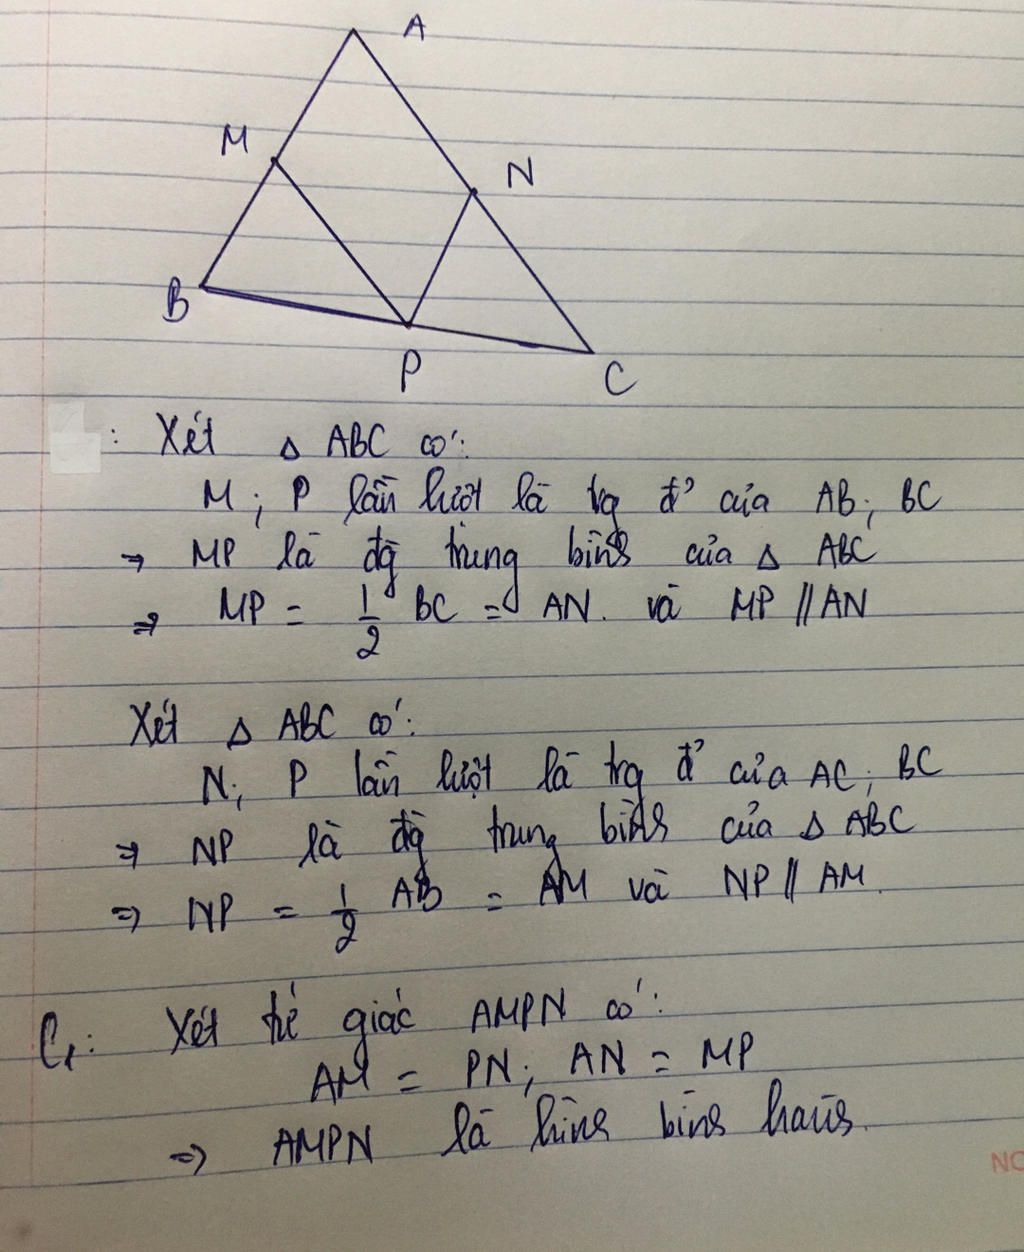 A
M
N
B
P
C
: Xét Δ ABC có:
M; P lần lượt là tg đ' của AB; BC
→ MP là đg trung bình của Δ ABC
⇒ MP = 1/2 BC = AN. và MP // AN
Xét Δ ABC có:
N; P lần lượt là trg đ' của AC; BC
⇒ NP là đg trung bình của Δ ABC
⇒ NP = 1/2 AB = AM và NP // AM.
C1: Xét tứ giác AMPN có:
AM = PN; AN = MP
⇒ AMPN là hình bình hành.
NO